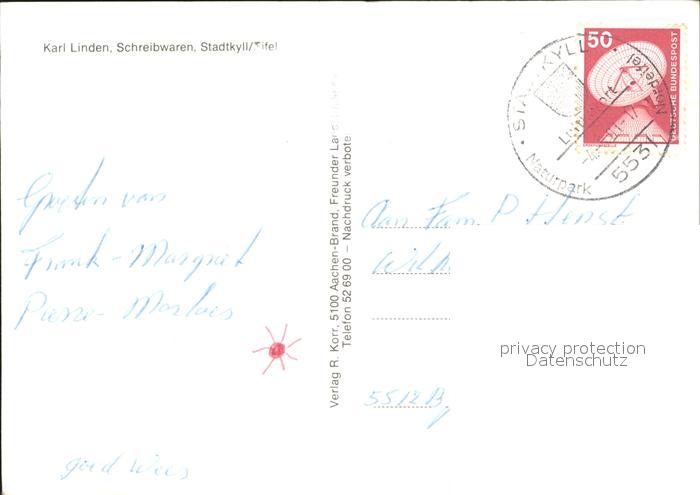 Karl Linden, Schreibwaren, Stadtkyll/Eifel
50
DEUTSCHE BUNDESPOST
STADTKYLL
Nordeifel
5531
Naturpark
Groeten van
Frank - Margriet
Pierre - Marloes
goed weer
Verlag R. Korr, 5100 Aachen-Brand, Freunder
Telefon 52 69 00 – Nachdruck verbote
Aan Fam. P Henst
5512 B
privacy protection
Datenschutz